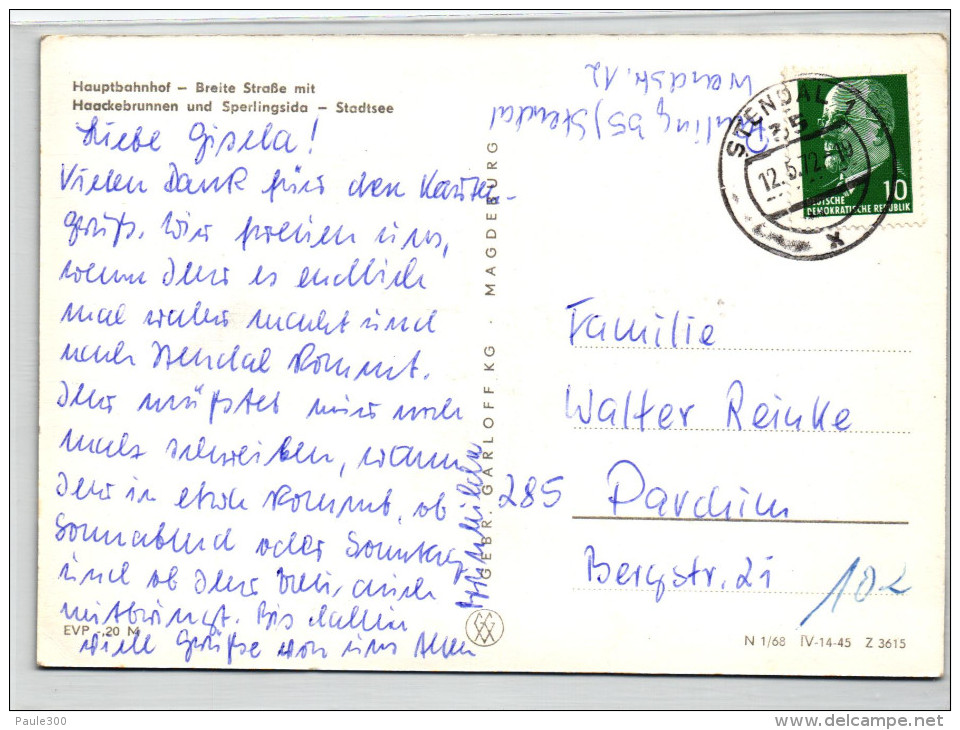 Hauptbahnhof – Breite Straße mit
Haackebrunnen und Sperlingsida – Stadtsee
Liebe Gisela!
Vielen Dank für den Karten-
gruß. Wir freuen uns,
wenn Ihr es endlich
mal wahr macht und
nach Stendal kommt.
Ihr müßtet mir noch
mal schreiben, wann
Ihr in etwa kommt, ob
Sonnabend oder Sonntag
und ob Ihr auch
mitbringt. Bis dahin
viele Grüße von uns Allen
EVP -,20 M
GEBR. GARLOFF KG · MAGDEBURG
35 Stendal
Wendstr. 12
STENDAL 1
35
12.5.72-19
x
10
DEUTSCHE
DEMOKRATISCHE REPUBLIK
Familie
Walter Reinke
285 Parchim
Bergstr. 21
N 1/68 IV-14-45 Z 3615
Paule300
www.delcampe.net